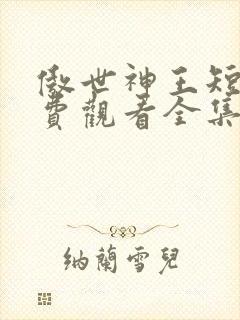 傲世神王短
費觀看全集
納蘭雪兒